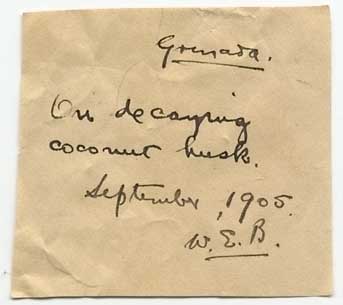 Grenada.
On decaying
coconut husk.
September, 1905.
W. E. B.